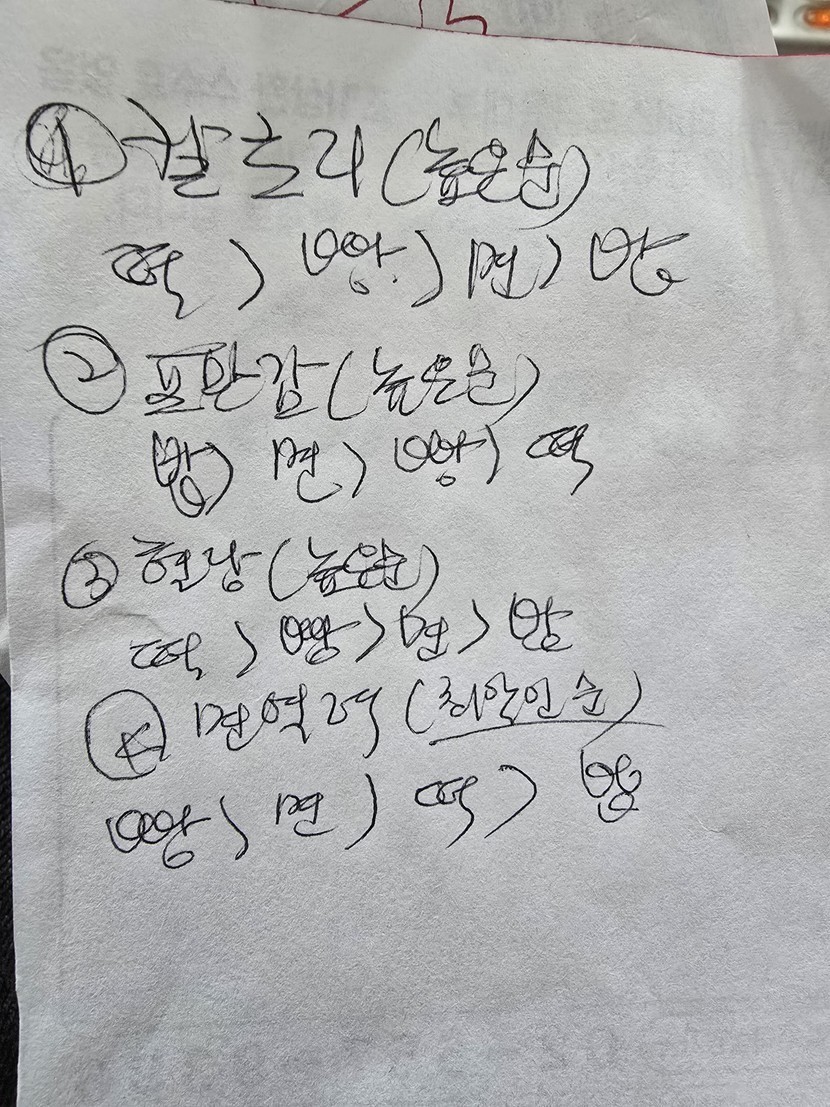 ① 칼로리 (높은순)
떡 > 빵 > 면 > 밥
② 포만감 (높은순)
밥 > 면 > 빵 > 떡
③ 혈당 (높은순)
떡 > 빵 > 면 > 밥
④ 면역력 (최악인순)
빵 > 면 > 떡 > 밥